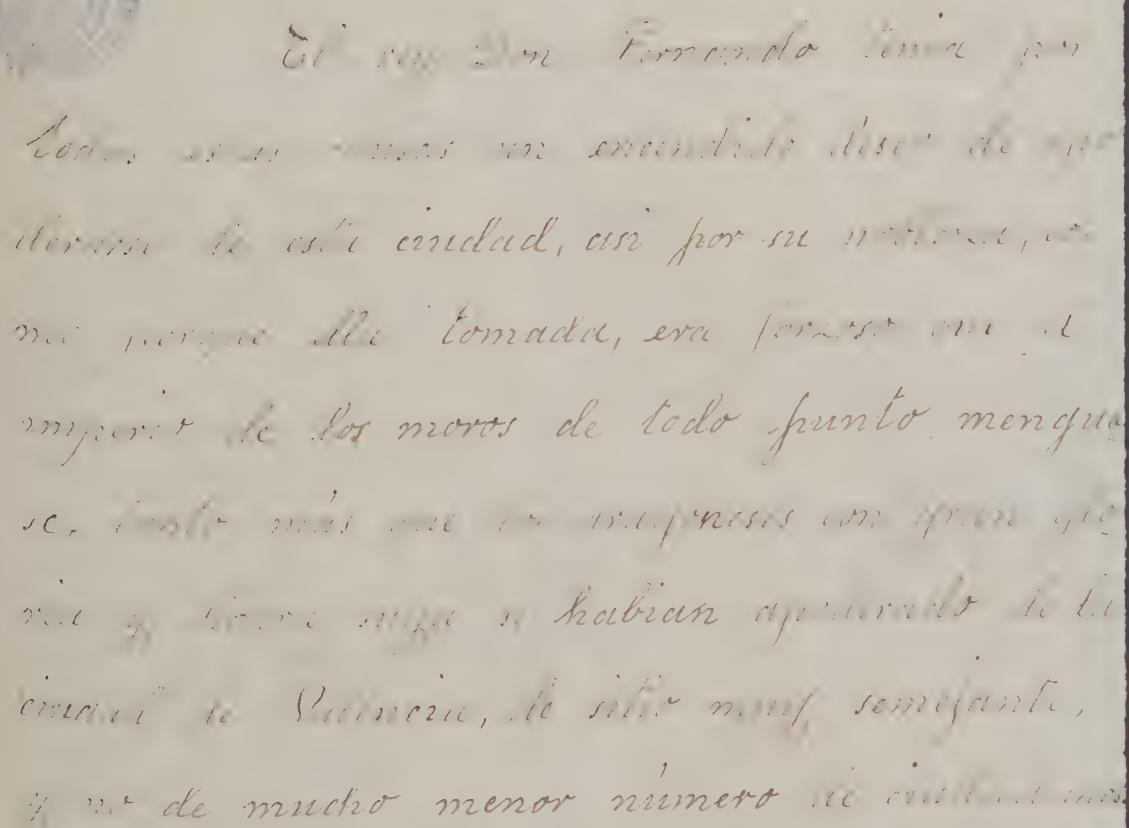 El rey Don Fernando tenia por
todas estas causas un encendido deseo de apo
derarse de esta ciudad, asi por su nobleza, co
mo porque ella tomada, era forzoso que el
imperio de los moros de todo punto mengua
se, tanto más que los aragoneses con gran glo
ria y honra suya se habian apoderado de la
ciudad de Valencia, de sitio muy semejante,
y no de mucho menor número de ciudadanos